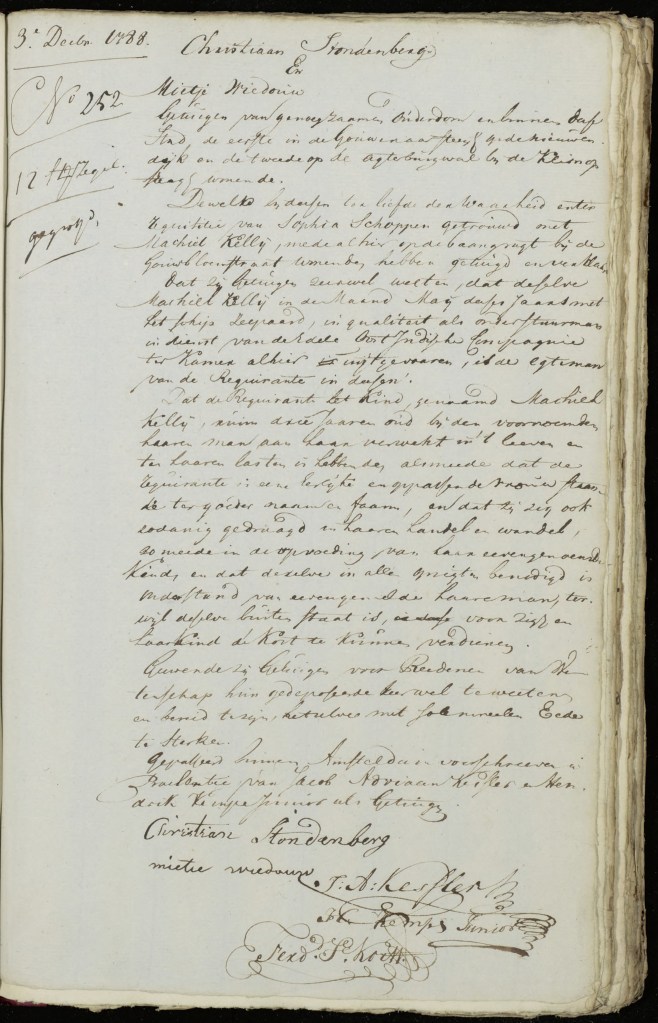 3e Decbr. 1788.
No 252
12 st. Zegel.
Christiaan Stondenberg
En
Mietje Wiedouw
Getuigen van genoegzaamen Ouderdom en binnen deese
Stad, de eerste in de Gouwenaarsteeg op de nieuwen
dijk en de tweede op de agterburgwal bij de
steeg woonende.
Dewelke bij deesen ter liefde der Waarheid en ter
Requisitie van Sophia Schoppen getrouwd met
Machiel Kellij, mede alhier op de baangragt bij de
Goudsbloemstraat wonende, hebben getuigd en verklaard
Dat zij Getuigen zeer wel weten, dat deselve
Machiel Kellij in de Maand Maij deses Jaars met
het schip in qualiteit als onderstuurman
in dienst van de Edele Oost Indische Compagnie
ter Kamer alhier is uijtgevaaren, is de egteman
van de Requirante in deesen.
Dat de Requirante het Kind, genaamd Machiel
Kellij, ruim drie Jaaren oud bij den voornoemden
haaren man aan haar verwekt in 't leeven en
ten haaren lasten is hebbende, alsmeede dat de
Requirante is eene Eerlijke en oppassende vrouw staan
de ter goeder naam en faam, en dat zij zig ook
zodanig gedraagd in haaren handel en wandel,
zo meede in de opvoeding van haar eevengenoemde
Kind, en dat deselve in alle opzigten benodigd is
onderstand van eevengemelde haare man, ter-
wijl deselve buiten staat is, voor zig en
haar Kind de Kost te Kunnen verdienen.
Geevende zij Getuigen voor Reedenen van We
tenschap hun gedeposeerde zeer wel te weeten
en bereid te zijn, hetselve met solemneelen Eede
te sterken.
Gepasseerd binnen Amsteldam voorschreeven in
Presentie van Jacob Adriaan Kesler en Hen
drik Kemper Junior als Getuigen.
Christiaan Stondenberg
mietie wiedouw
J: A: Kesler
H: Kemper Junior